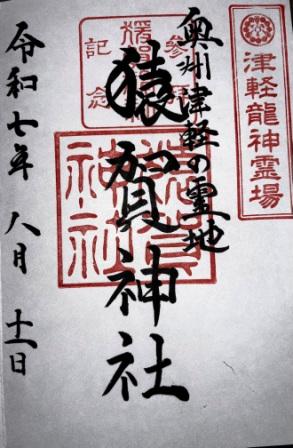 津軽龍神霊場
奥州津軽の霊地
参拝
記念
猿賀神社
猿賀神社
令和七年 八月 十一日